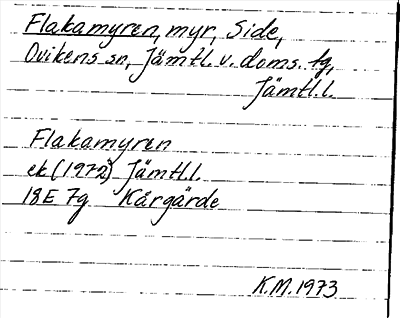 Flakamyren, myr, Side,
Ovikens sn, Jämtl. v. doms. tg,
Jämtl.l.
Flakamyren
ek (1972) Jämtl.l.
18E 7g Kårgärde
K.M. 1973